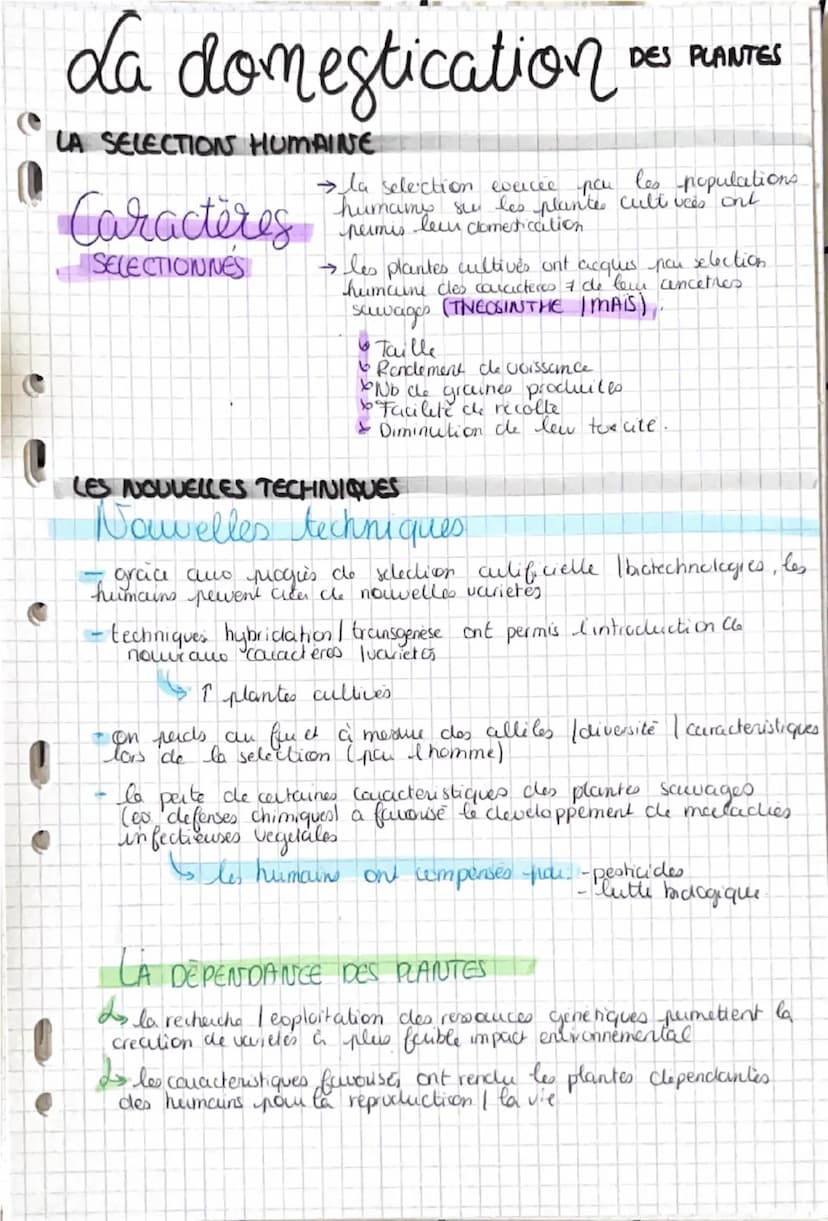 La domestication DES PLANTES
LA SELECTION HUMAINE
Caractères
SELECTIONNÉS
→ la selection exercée par les populations
humains sur les plantes cultivées ont
permis leur domestication
→ les plantes cultivés ont acquis par selection
humaine des caractères ≠ de leur ancetres
sauvages (THEOSINTHE / MAÏS).
↳ Taille
↳ Rendement de croissance
↳ Nb de graines produites
↳ Facilité de récolte
↳ Diminution de leur toxicité.
LES NOUVELLES TECHNIQUES
Nouvelles techniques
- grâce aux progrès de selection artificielle / biotechnologies, les
humains peuvent créer de nouvelles variétés
- techniques hybridation / transgenèse ont permis l'introduction de
nouveaux caractères / variétés
↳ ↑ plantes cultivés
- on perds au fur et à mesure des allèles / diversité / caracteristiques
lors de la selection (par l'homme)
- la perte de certaines caracteristiques des plantes sauvages
(ex defenses chimiques) a favorisé le developpement de maladies
infectieuses vegetales
↳ les humains ont compensés par: - pesticides
- lutte biologique.
LA DÉPENDANCE DES PLANTES
↳ la recherche / exploitation des ressources genétiques permettent la
creation de variétés à plus faible impact environnemental
↳ les caracteristiques favorisés ont rendu les plantes dependantes
des humains pour la reproduction / la vie